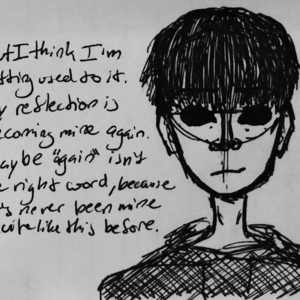 ut I think I'm
tting used to it.
y reflection is
ecoming mine again.
aybe "again" isn't
e right word, because
t's never been mine
uite like this before.